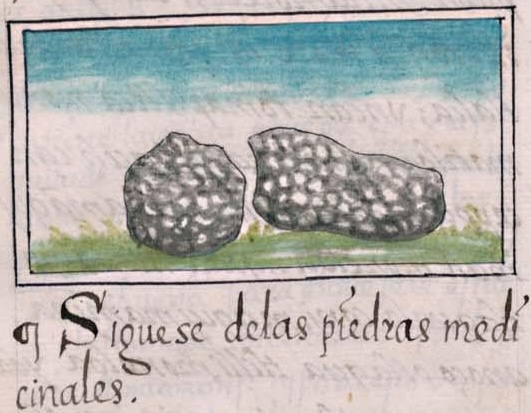 ¶ Siguese delas piedras medi
cinales.